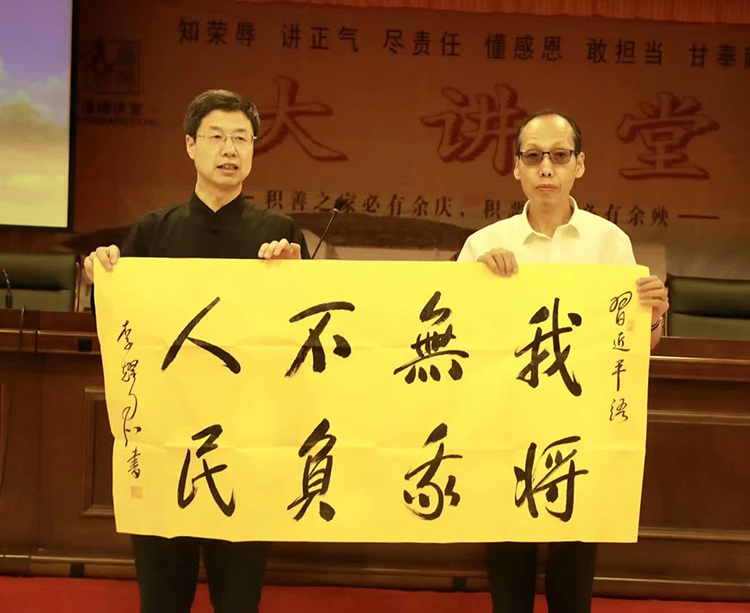 知荣辱 讲正气 尽责任 懂感恩 敢担当 甘奉
道德讲堂
大讲堂
积善之家必有余庆，积 必有余殃
習近平语
我将
無我
不負
人民
李 書